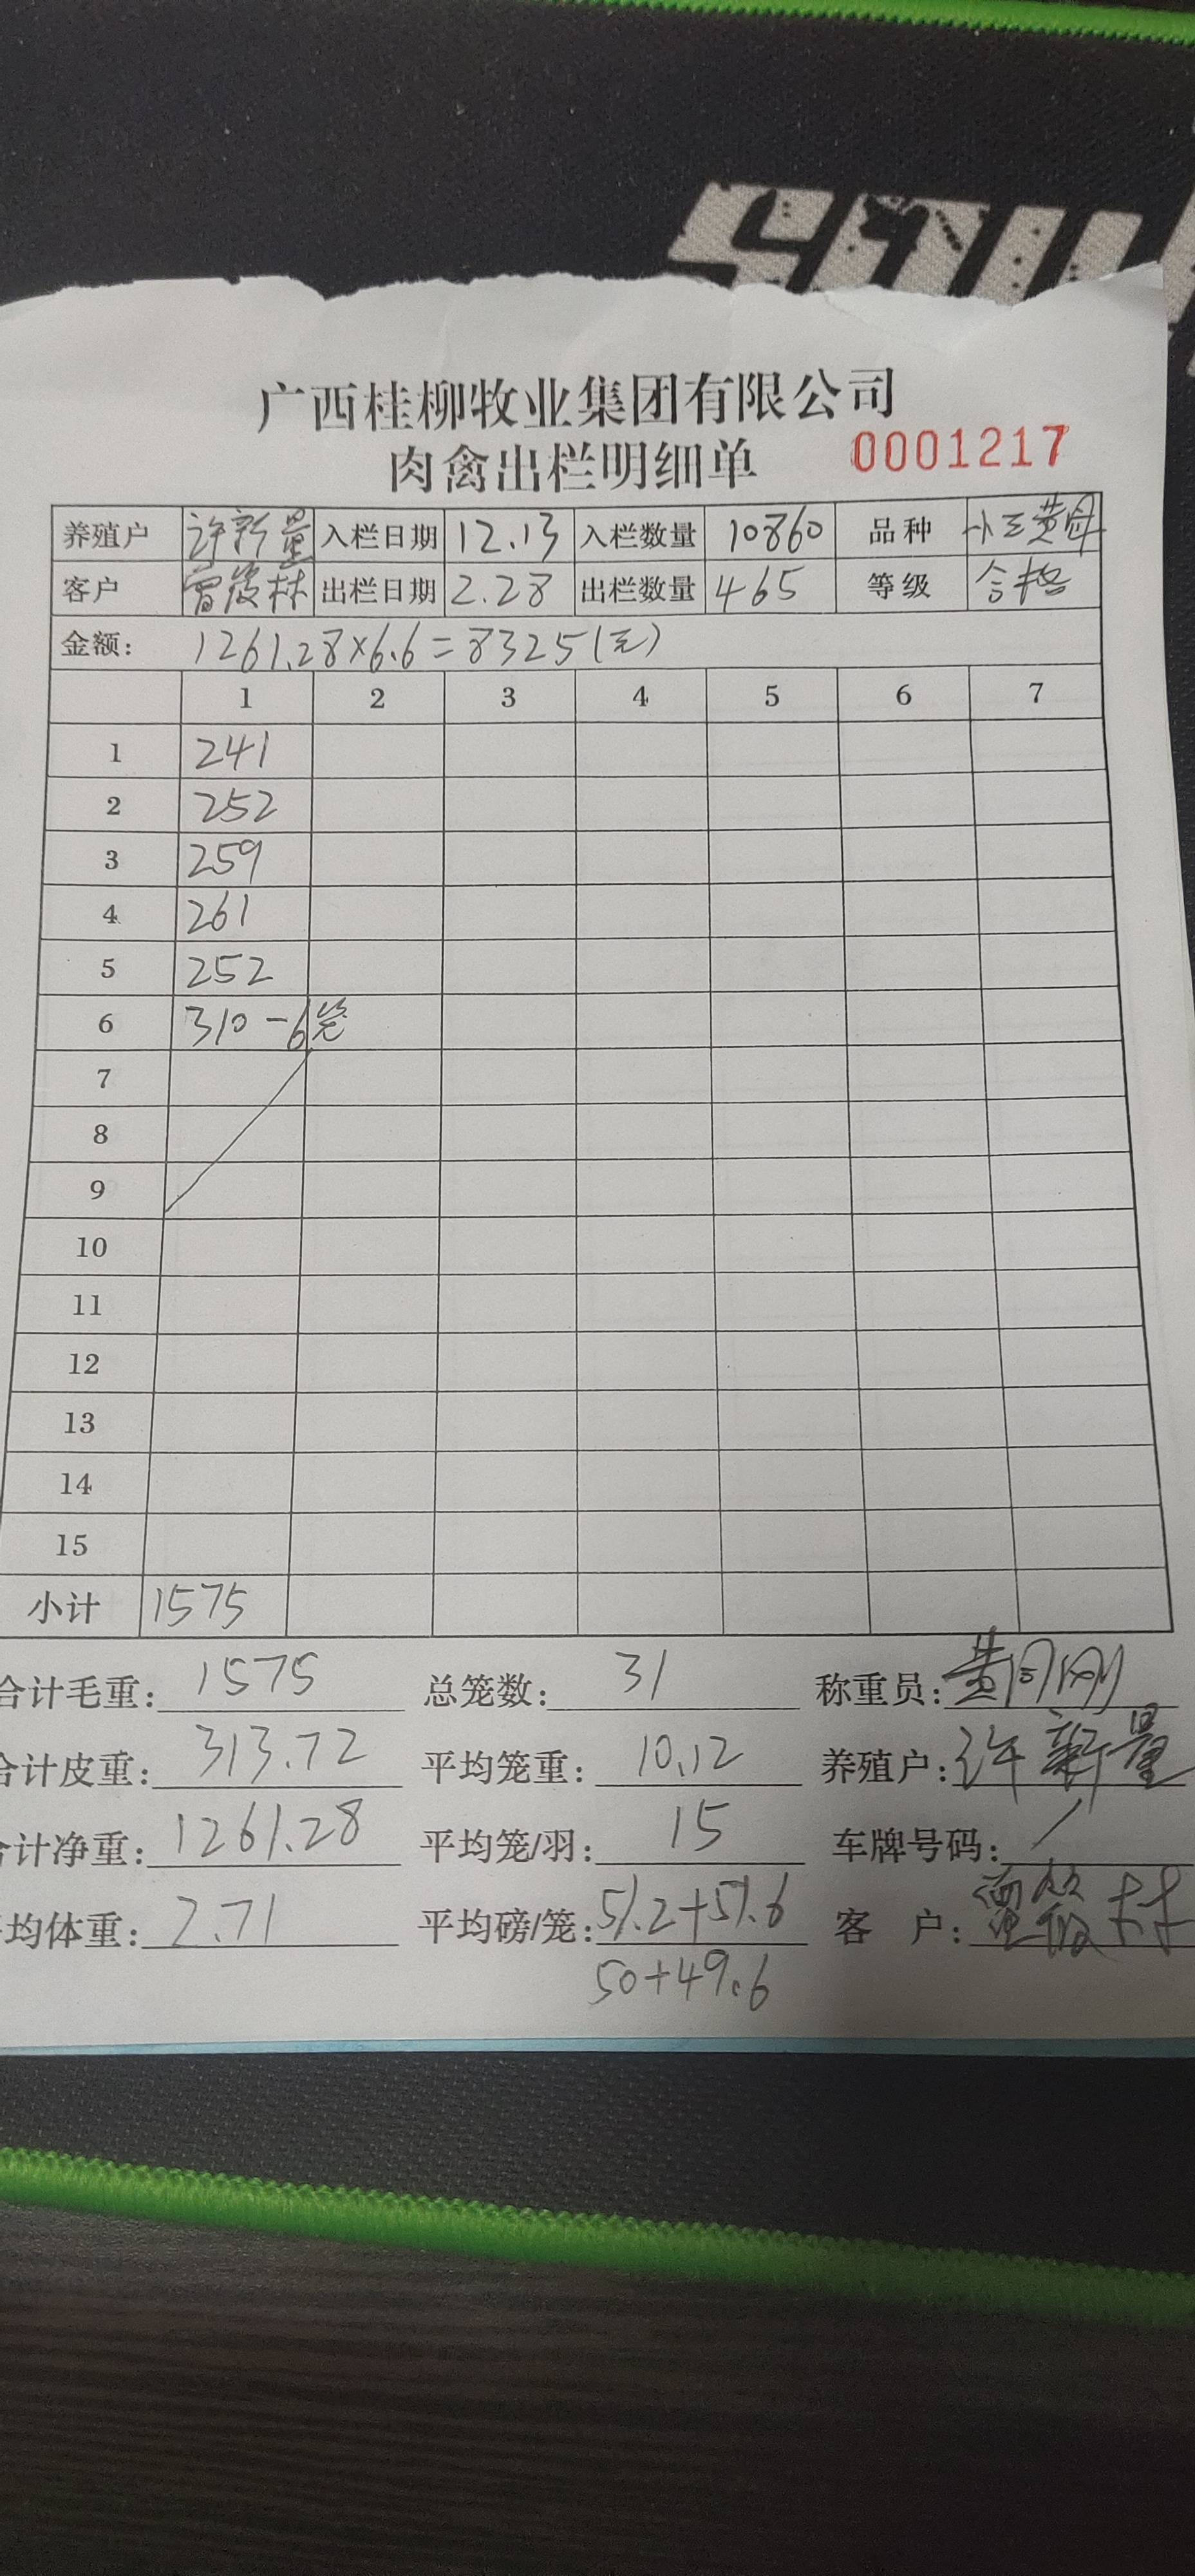 广西桂柳牧业集团有限公司
肉禽出栏明细单 0001217
养殖户 许新量 入栏日期 12.13 入栏数量 10860 品种 小三黄母
客户 曾筱林 出栏日期 2.28 出栏数量 465 等级 合格
金额: 1261.28×6.6=8325(元)
1 2 3 4 5 6 7
1 241
2 252
3 259
4 261
5 252
6 310-6笼
7
8
9
10
11
12
13
14
15
小计 1575
合计毛重: 1575 总笼数: 31 称重员:
合计皮重: 313.72 平均笼重: 10.12 养殖户: 许新量
合计净重: 1261.28 平均笼/羽: 15 车牌号码: /
均体重: 2.71 平均磅/笼: 51.2+51.6 客户: 曾筱林
50+49.6